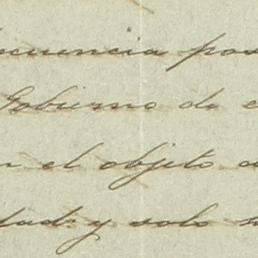 cuencia pos
Gobierno de e
n el objeto d
dad: y solo